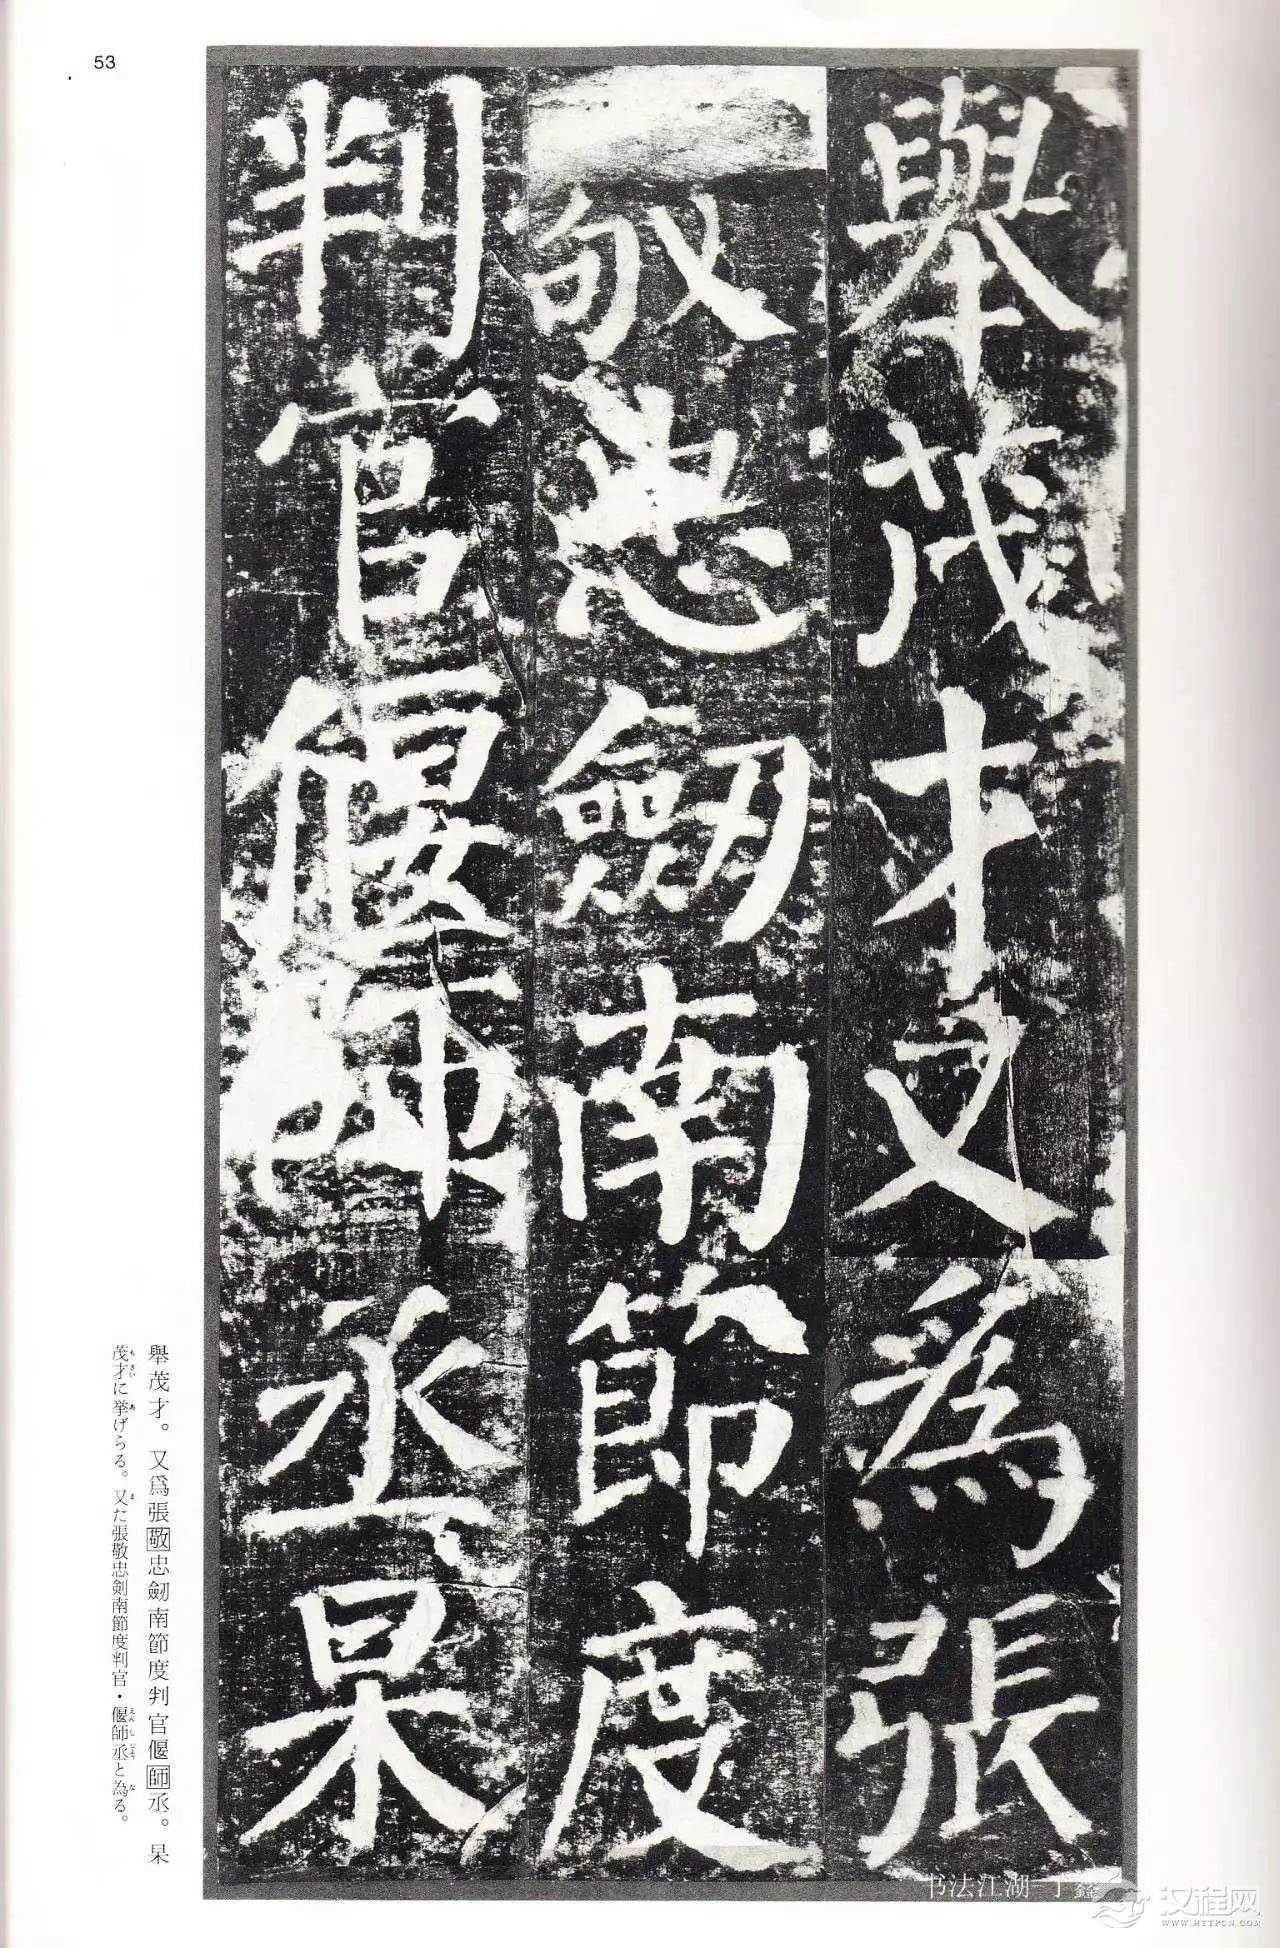 53
舉茂才又爲張
敬忠劒南節度
判官偃師丞杲
舉茂才。又爲張敬忠劒南節度判官偃師丞。杲
茂才に挙げらる。又た張敬忠剣南節度判官・偃師丞と為る。
书法江湖一丁鑫
汉程网
WWW.HTTPCN.COM